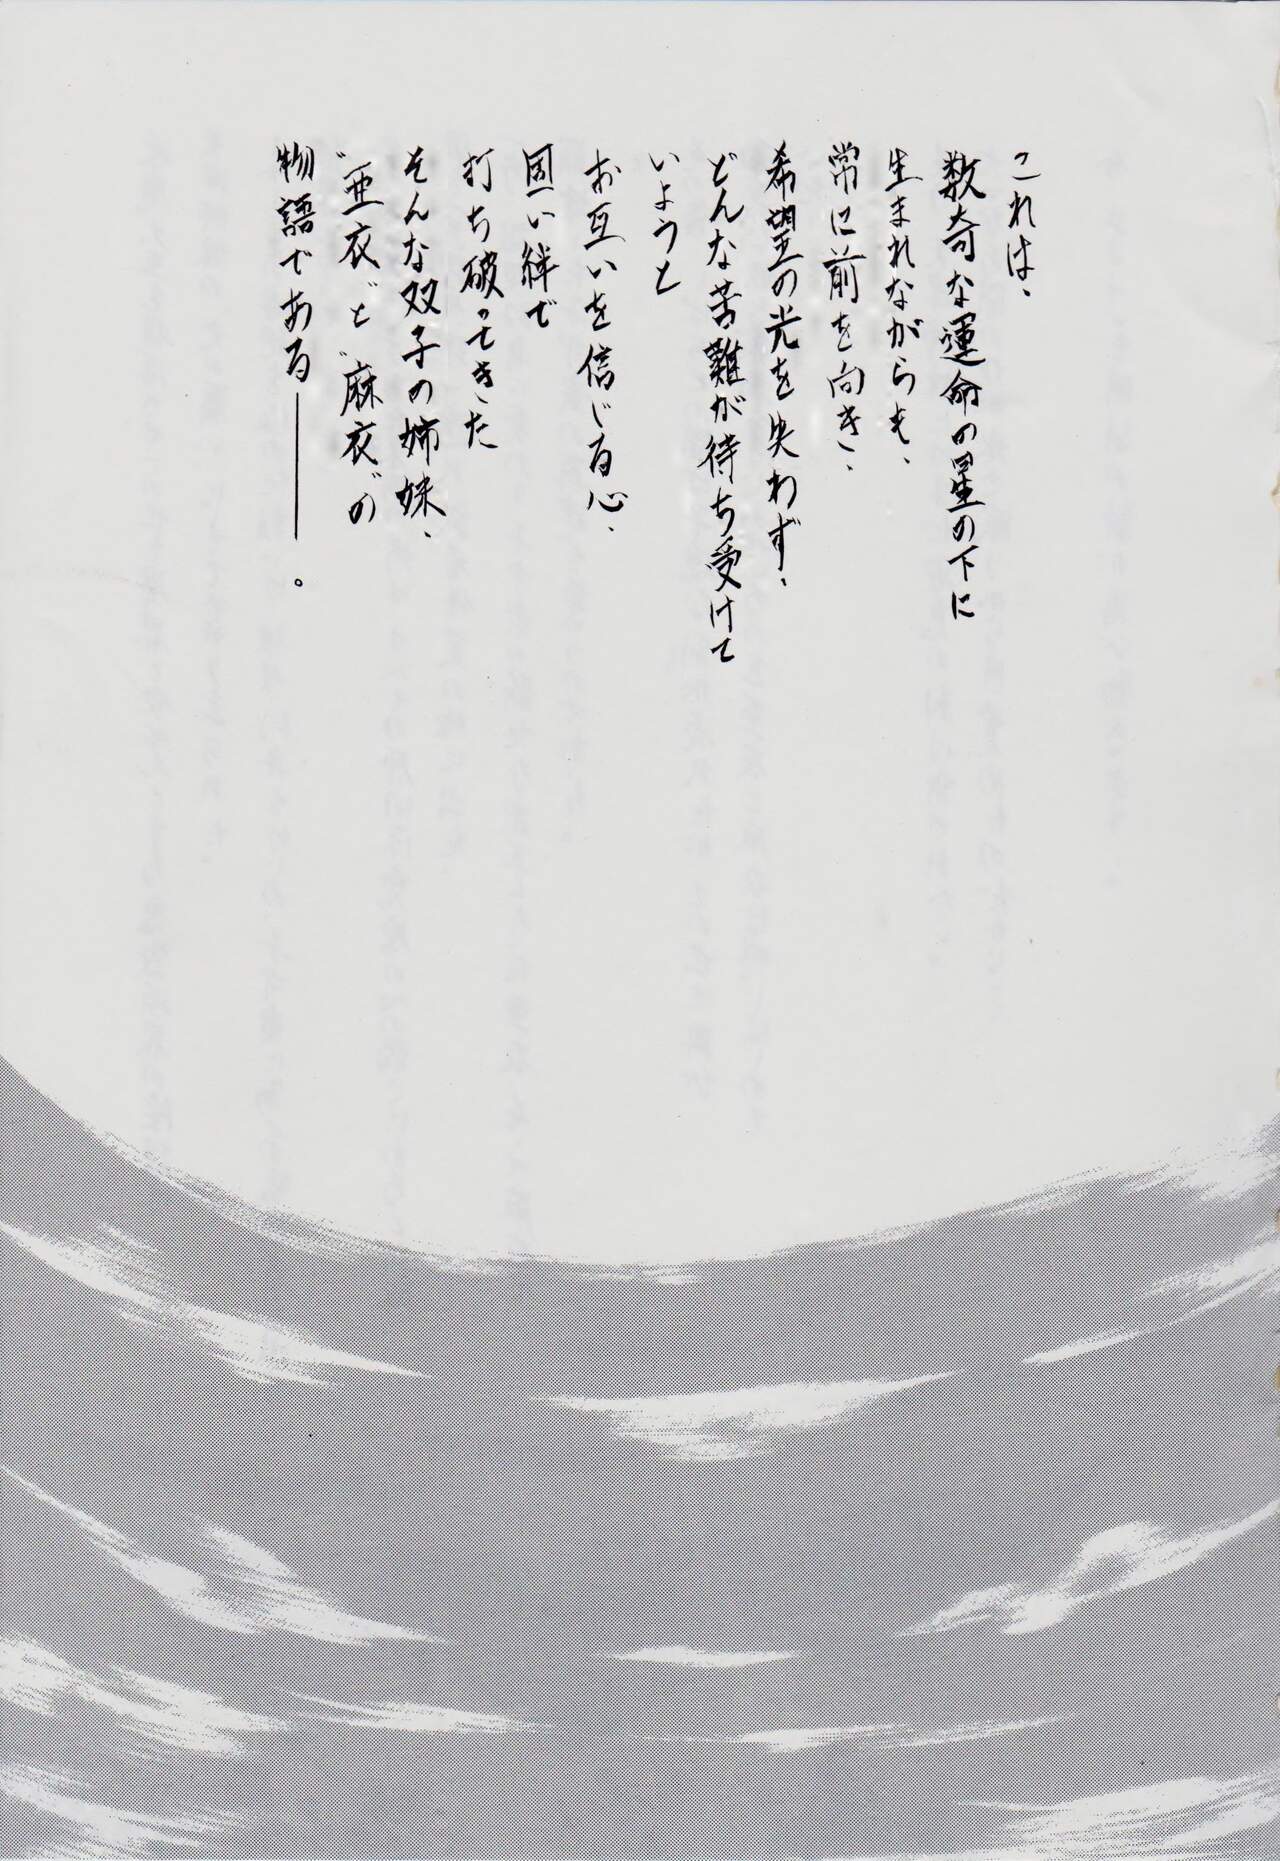 これは、
数奇な運命の星の下に
生まれながらも、
常に前を向き、
希望の光を失わず、
どんな苦難が待ち受けて
いようと
お互いを信じる心、
固い絆で
打ち破ってきた
そんな双子の姉妹、
〝亜衣〟と〝麻衣〟の
物語である――――。